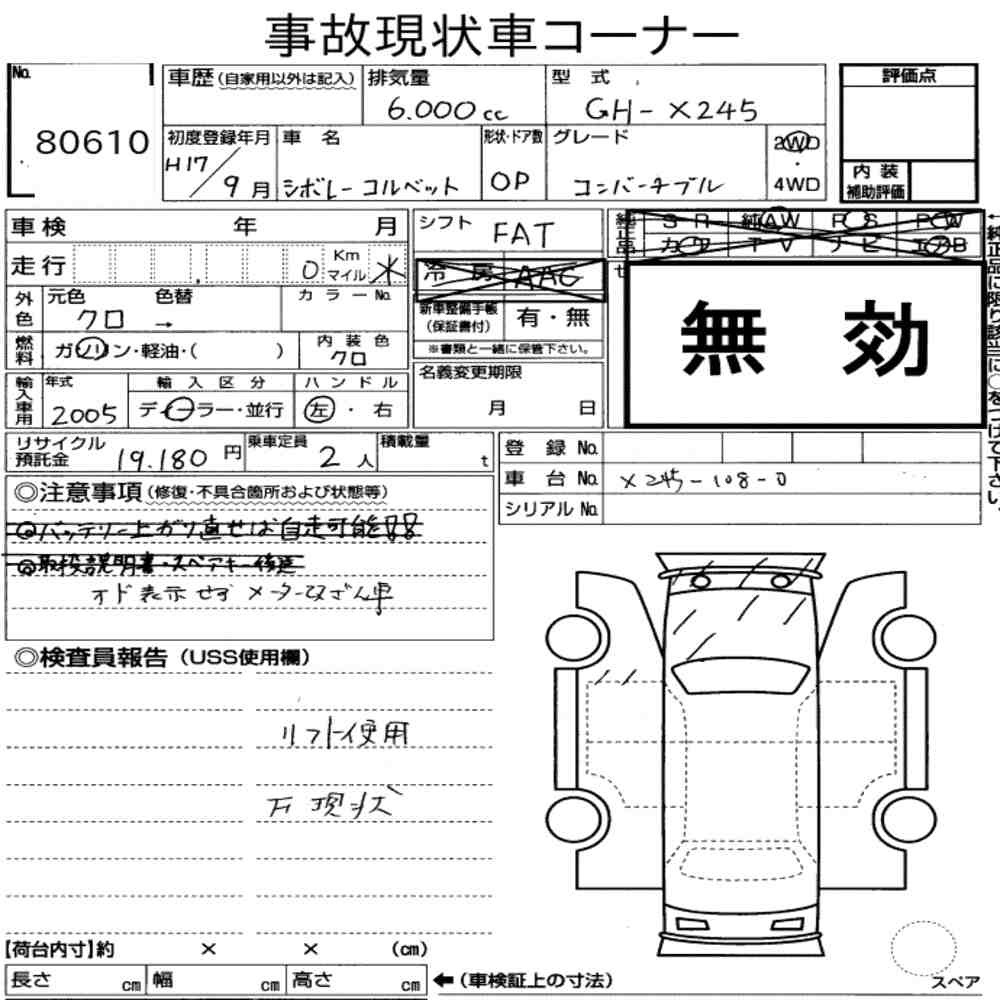 事故現状車コーナー
No.
80610
車歴(自家用以外は記入)
排気量
6.000cc
型 式
GH-X245
評価点
初度登録年月
H17/9月
車 名
シボレー コルベット
形状・ドア数
OP
グレード
コンバーチブル
2WD
・
4WD
内 装
補助評価
車検 年 月
シフト
FAT
純正品
S R 純AW P S P W
カワ T V ナビ エアB
←純正品に限り該当に○をつけて下さい。
走行 0 Km マイル
冷 房 AAC
無 効
外色
元色 色替
クロ →
カラーNo.
新車整備手帳
(保証書付)
有・無
※書類と一緒に保管下さい。
燃料
ガソリン・軽油・( )
内 装 色
クロ
名義変更期限
月 日
輸入車用
年式
2005
輸 入 区 分
ディーラー・並行
ハ ン ド ル
左 ・ 右
リサイクル
預託金
19.180 円
乗車定員
2人
積載量
t
登 録 No.
車 台 No.
X245-108-0
シリアル No.
◎注意事項(修復・不具合箇所および状態等)
◎バッテリー上がり直せば自走可能
◎取扱説明書・スペアキー後送
オド表示せず メーター改ざん車
◎検査員報告(USS使用欄)
リフト使用
現状
【荷台内寸】約 × × (cm)
長さ cm 幅 cm 高さ cm ←(車検証上の寸法)
スペア